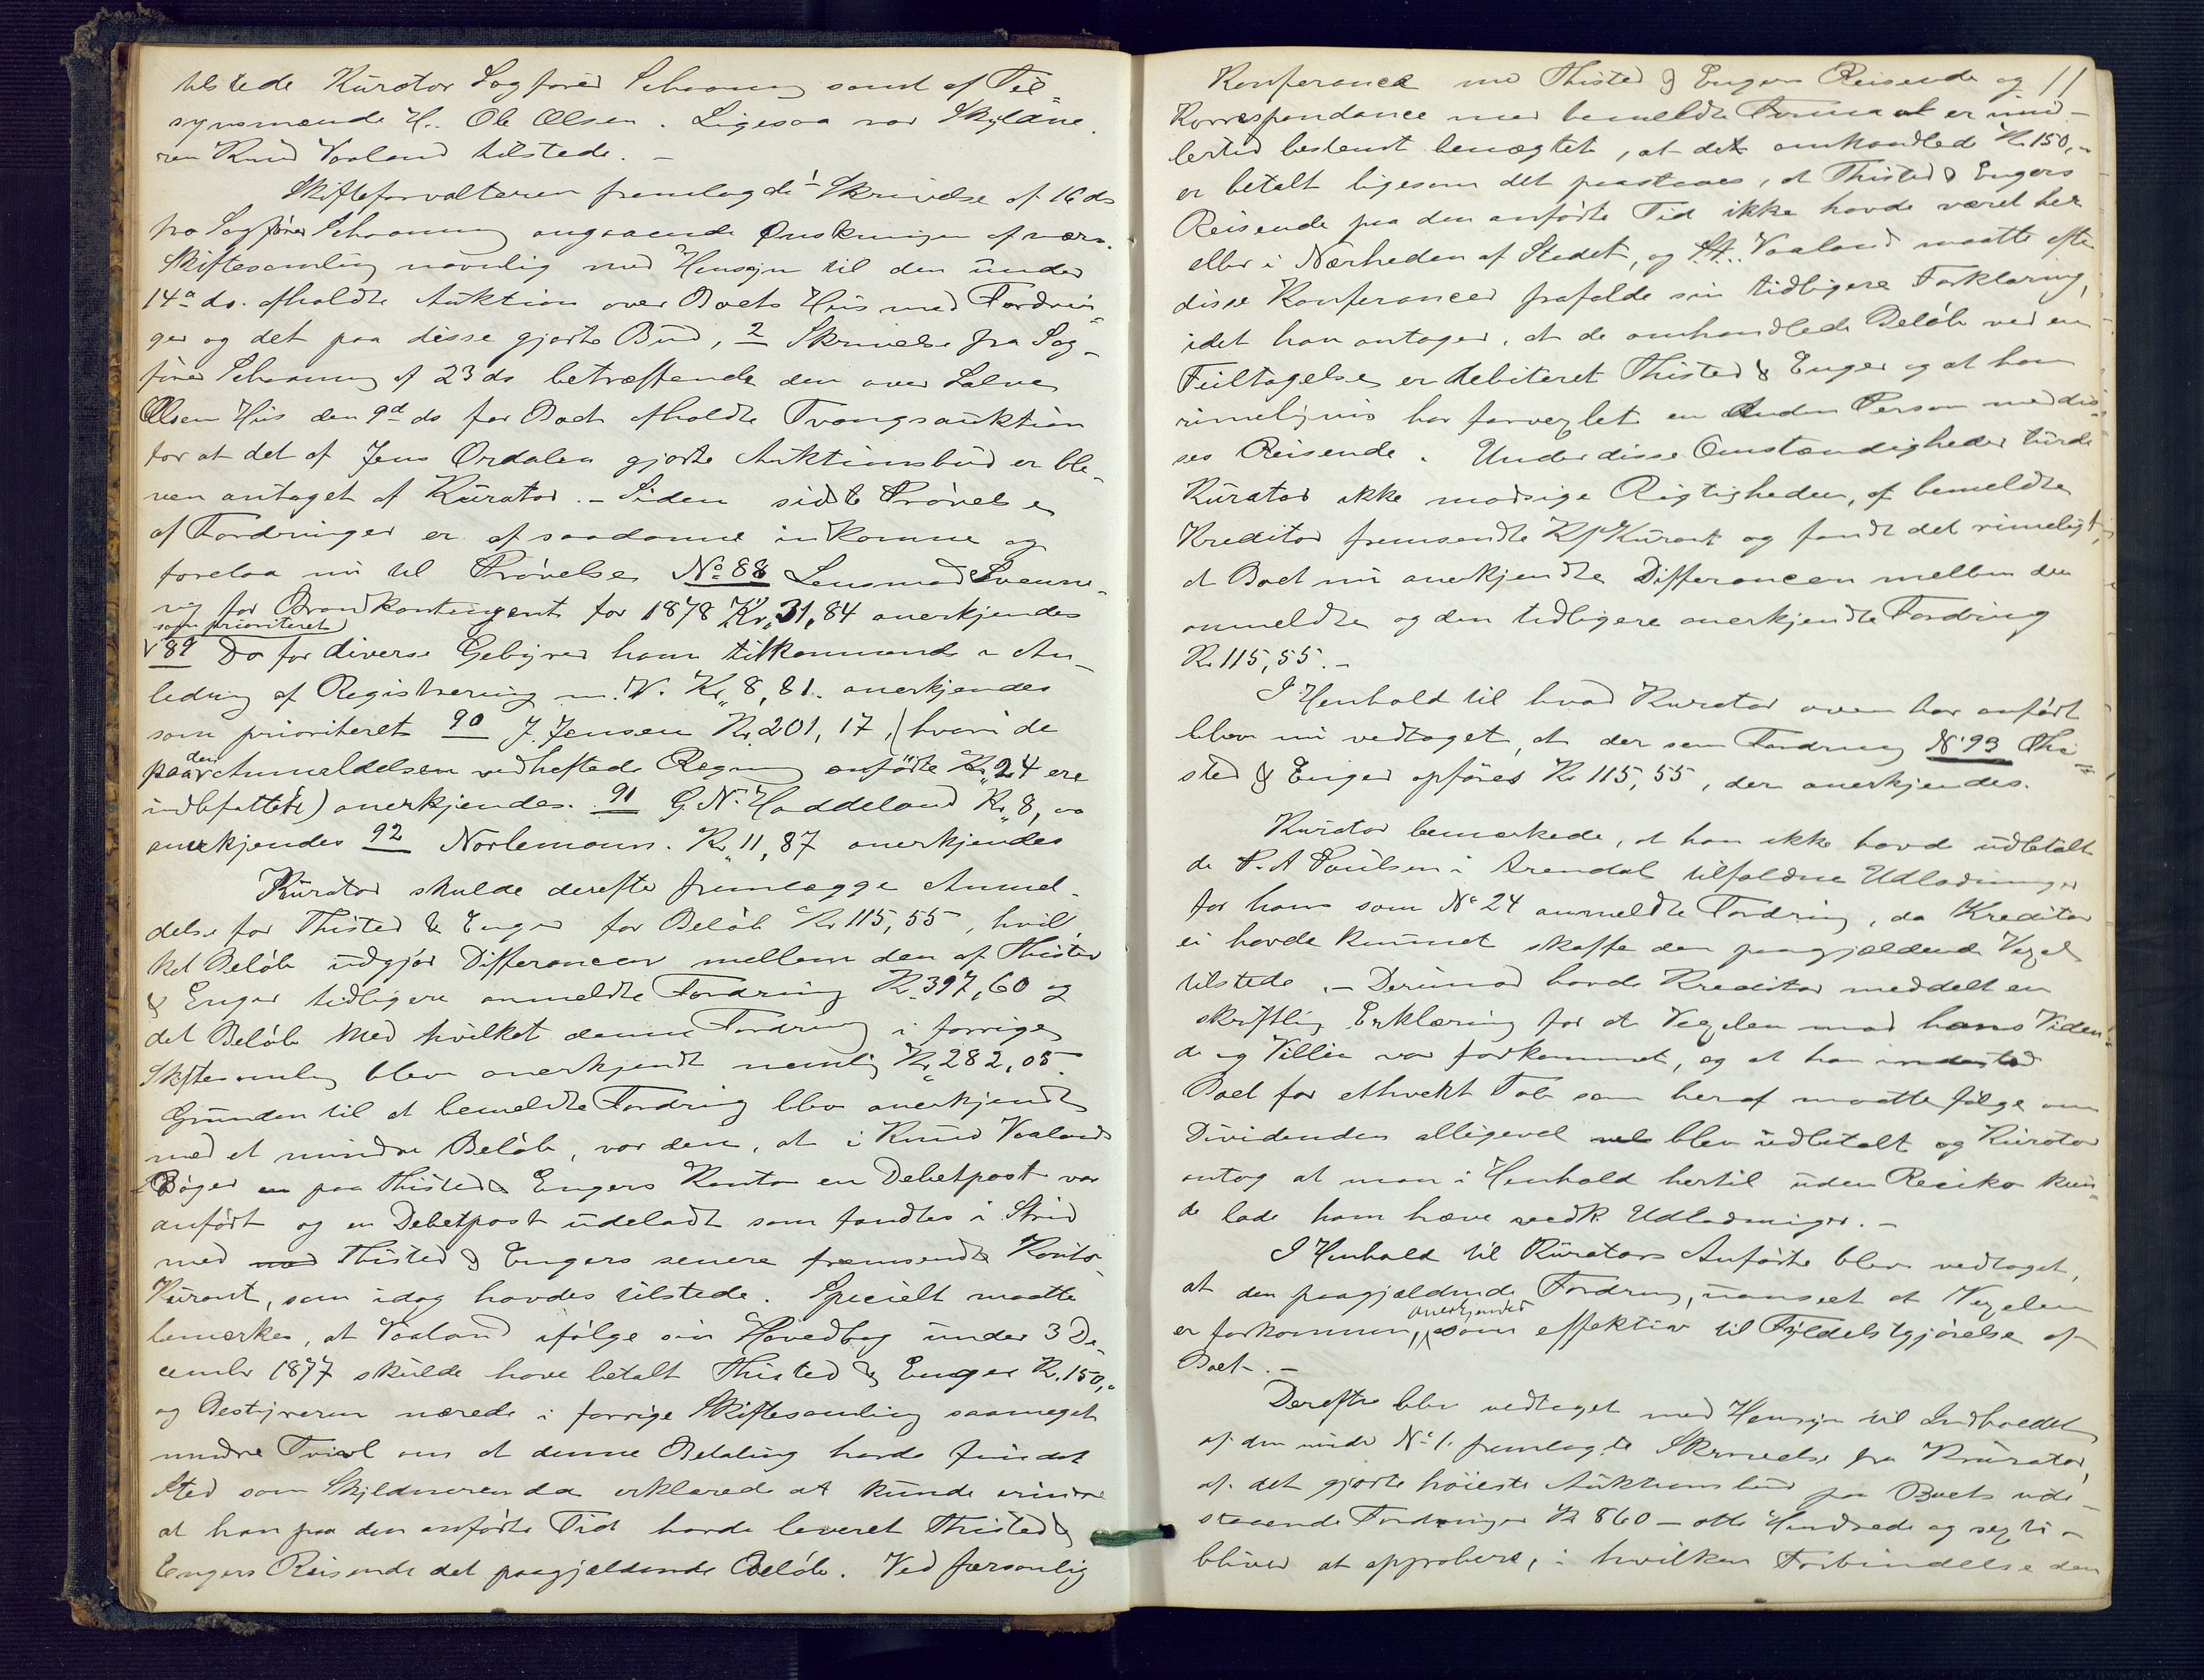 tilstede Kurator Sagfører Schaaning samt af Til-
synsmænde H. Ole Olsen. Ligesaa var Skyldne
ren Knud Vaaland tilstede. -
Skifteforvalteren fremlagde 1 Skrivelse af 16 ds
fra Sagfører Schaaning angaaende Ønskningen af nærv.
Skiftesamling navnlig med Hensyn til den under
14de ds. afholdte Auktion over Boets Hus med Fordrin-
ger og det paa disse gjorte Bud, 2 Skrivelse fra Sag-
fører Schaaning af 23 ds betræffende den over Salve
Olsen Hus den 9d ds for Boet afholdte Tvangsauktion
for at det af Jens Ordalen gjorte Auktionsbud er ble-
ven antaget af Kurator. - Siden sidste Prøvelse
af Fordringer er af saadanne indkomne og
forelaa nu til Prøvelse No 88 Lensmand Sveinu-
ng for Brandkontingent for 1878 Kr. 31,84 anerkjendes
som prioriteret
89 Do for diverse Gebyrer ham tilkommende i An-
ledning af Registrering m. V. Kr. 8,81. anerkjendes
som prioriteret 90 J. Jensen Kr. 201,17, (hvori de
paa den Anmeldelsen vedheftede Regning anførte Kr. 24 ere
indbefattede) anerkjendes. 91 G. N. Haddeland Kr. 8, oo
anerkjendes 92 Norlemann. Kr. 11,87 anerkjendes
Kurator skulde derefter fremlægge Anmel-
delse for Thisted & Enger for Beløb Kr 115,55, hvil
ket Beløb udgjør Differancen mellem den af Thisted
& Enger tidligere anmeldte Fordring Kr. 397,60 og
det Beløb med hvilket denne Fordring i forrige
Skiftesamling blev anerkjendt nemlig Kr. 282,05.
Grunden til at bemeldte Fordring blev anerkjendt
med et mindre Beløb, var den, at i Knud Vaalands
Bøger paa Thisted & Engers Konto en Debetpost var
anført og en Debetpost udeladt som fandtes i Strid
med med Thisted & Engers senere fremsendte Konto-
Kurant, som idag havdes tilstede. Specielt maatte
bemærkes, at Vaaland ifølge sin Hovedbog under 3 De-
cembr 1877 skulde have betalt Thisted & Enger Kr. 150,"
og Bestyreren nærede i forrige Skiftesamling saameget
mindre Tvivl om at denne Betaling havde fundet
Sted som Skyldneren da erklærede at kunde erindre
at han paa den anførte Tid havde leveret Thisted &
Engers Reisende det paagjældende Beløb. Ved personlig
11
Konferance med Thisted & Engers Reisende og
Korrespondance med bemeldte Firma er imid-
lertid bestemt benægtet, at det omhandlede Kr. 150,-
er betalt ligesom det paastaaes, at Thisted & Engers
Reisende paa den anførte Tid ikke havde været her
eller i Nærheden af Stedet, og Vaaland maatte efter
disse Konferancer frafalde sin tidligere Forklaring,
idet han antager, at de omhandlede Beløb ved en
Feiltagelse er debiteret Thisted & Enger og at han
rimeligvis har forvexlet en anden Person med dis-
ses Reisende. Under disse Omstændigheder turde
Kurator ikke modsige Rigtigheden, af bemeldte
Kreditor fremsendte Kurant og fandt det rimeligt,
at Boet nu anerkjendte Differancen mellem den
anmeldte og den tidligere anerkjendte Fordring
Kr. 115,55. -
I Henhold til hvad Kurator oven har anført
blev nu vedtaget, at der som Fordring No 93 Thi-
sted & Enger opføres Kr. 115,55, der anerkjendes.
Kurator bemærkede, at han ikke havde udbetalt
de P. A Poulsen i Arendal tilfaldne Udlodninger
for hans som No 24 anmeldte Fordring, da Kreditor
ei havde kunnet skaffe den paagjældende Vexel
tilstede. - Derimod havde Kreditor meddelt en
skriftlig Erklæring for at Vexelen mod hans Viden-
de og Villie var forkommet, og at han indestod
Boet for ethvert Tab som heraf maatte følge om
Dividenden alligevel blev udbetalt og Kurator
antog at man i Henhold hertil uden Resiko kun-
de lade ham hæve vedk. Udlodninger. -
I Henhold til Kurators Anførte blev vedtaget,
at den paagjældende Fordring, uanseet at Vexelen
er forkommen, anerkjendes som effektiv til Fyldestgjørelse af
Boet. -
Derefter blev vedtaget med Hensyn til Indholdet
af den under No 1. fremlagte Skrivelse fra Kurator,
at det gjorte høieste Auktionsbud paa Boets ude-
staaende Fordringer Kr 860 - otte Hundrede og sexti -
bliver at approbere, i hvilken Forbindelse den